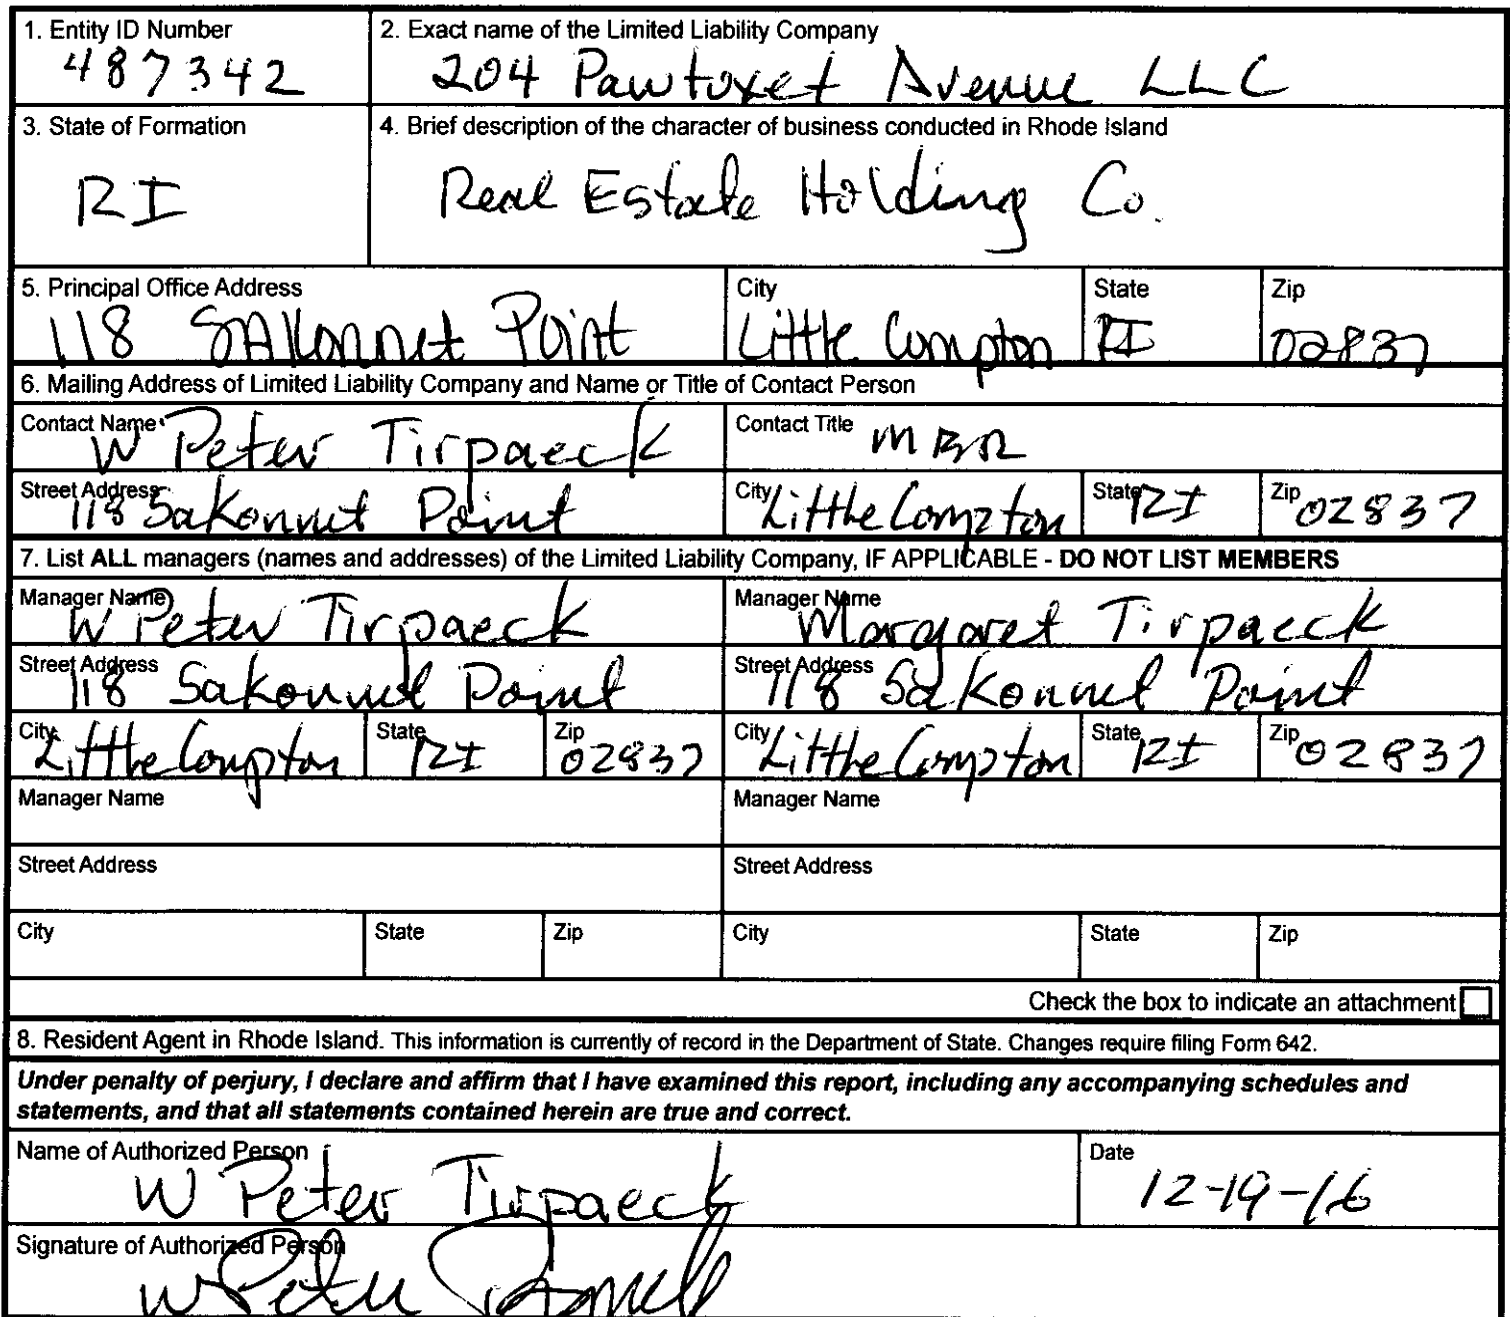 1. Entity ID Number
487342
2. Exact name of the Limited Liability Company
204 Pawtuxet Avenue LLC
3. State of Formation
RI
4. Brief description of the character of business conducted in Rhode Island
Real Estate Holding Co.
5. Principal Office Address
118 SAkonnet Point
City
Little Compton
State
RI
Zip
02837
6. Mailing Address of Limited Liability Company and Name or Title of Contact Person
Contact Name
W Peter Tirpaeck
Contact Title
MBR
Street Address
118 Sakonnet Point
City
Little Compton
State
RI
Zip
02837
7. List ALL managers (names and addresses) of the Limited Liability Company, IF APPLICABLE - DO NOT LIST MEMBERS
Manager Name
W Peter Tirpaeck
Manager Name
Margaret Tirpaeck
Street Address
118 Sakonnet Point
Street Address
118 Sakonnet Point
City
Little Compton
State
RI
Zip
02837
City
Little Compton
State
RI
Zip
02837
Manager Name
Manager Name
Street Address
Street Address
City
State
Zip
City
State
Zip
Check the box to indicate an attachment
8. Resident Agent in Rhode Island. This information is currently of record in the Department of State. Changes require filing Form 642.
Under penalty of perjury, I declare and affirm that I have examined this report, including any accompanying schedules and
statements, and that all statements contained herein are true and correct.
Name of Authorized Person
W Peter Tirpaeck
Date
12-19-16
Signature of Authorized Person
W Peter